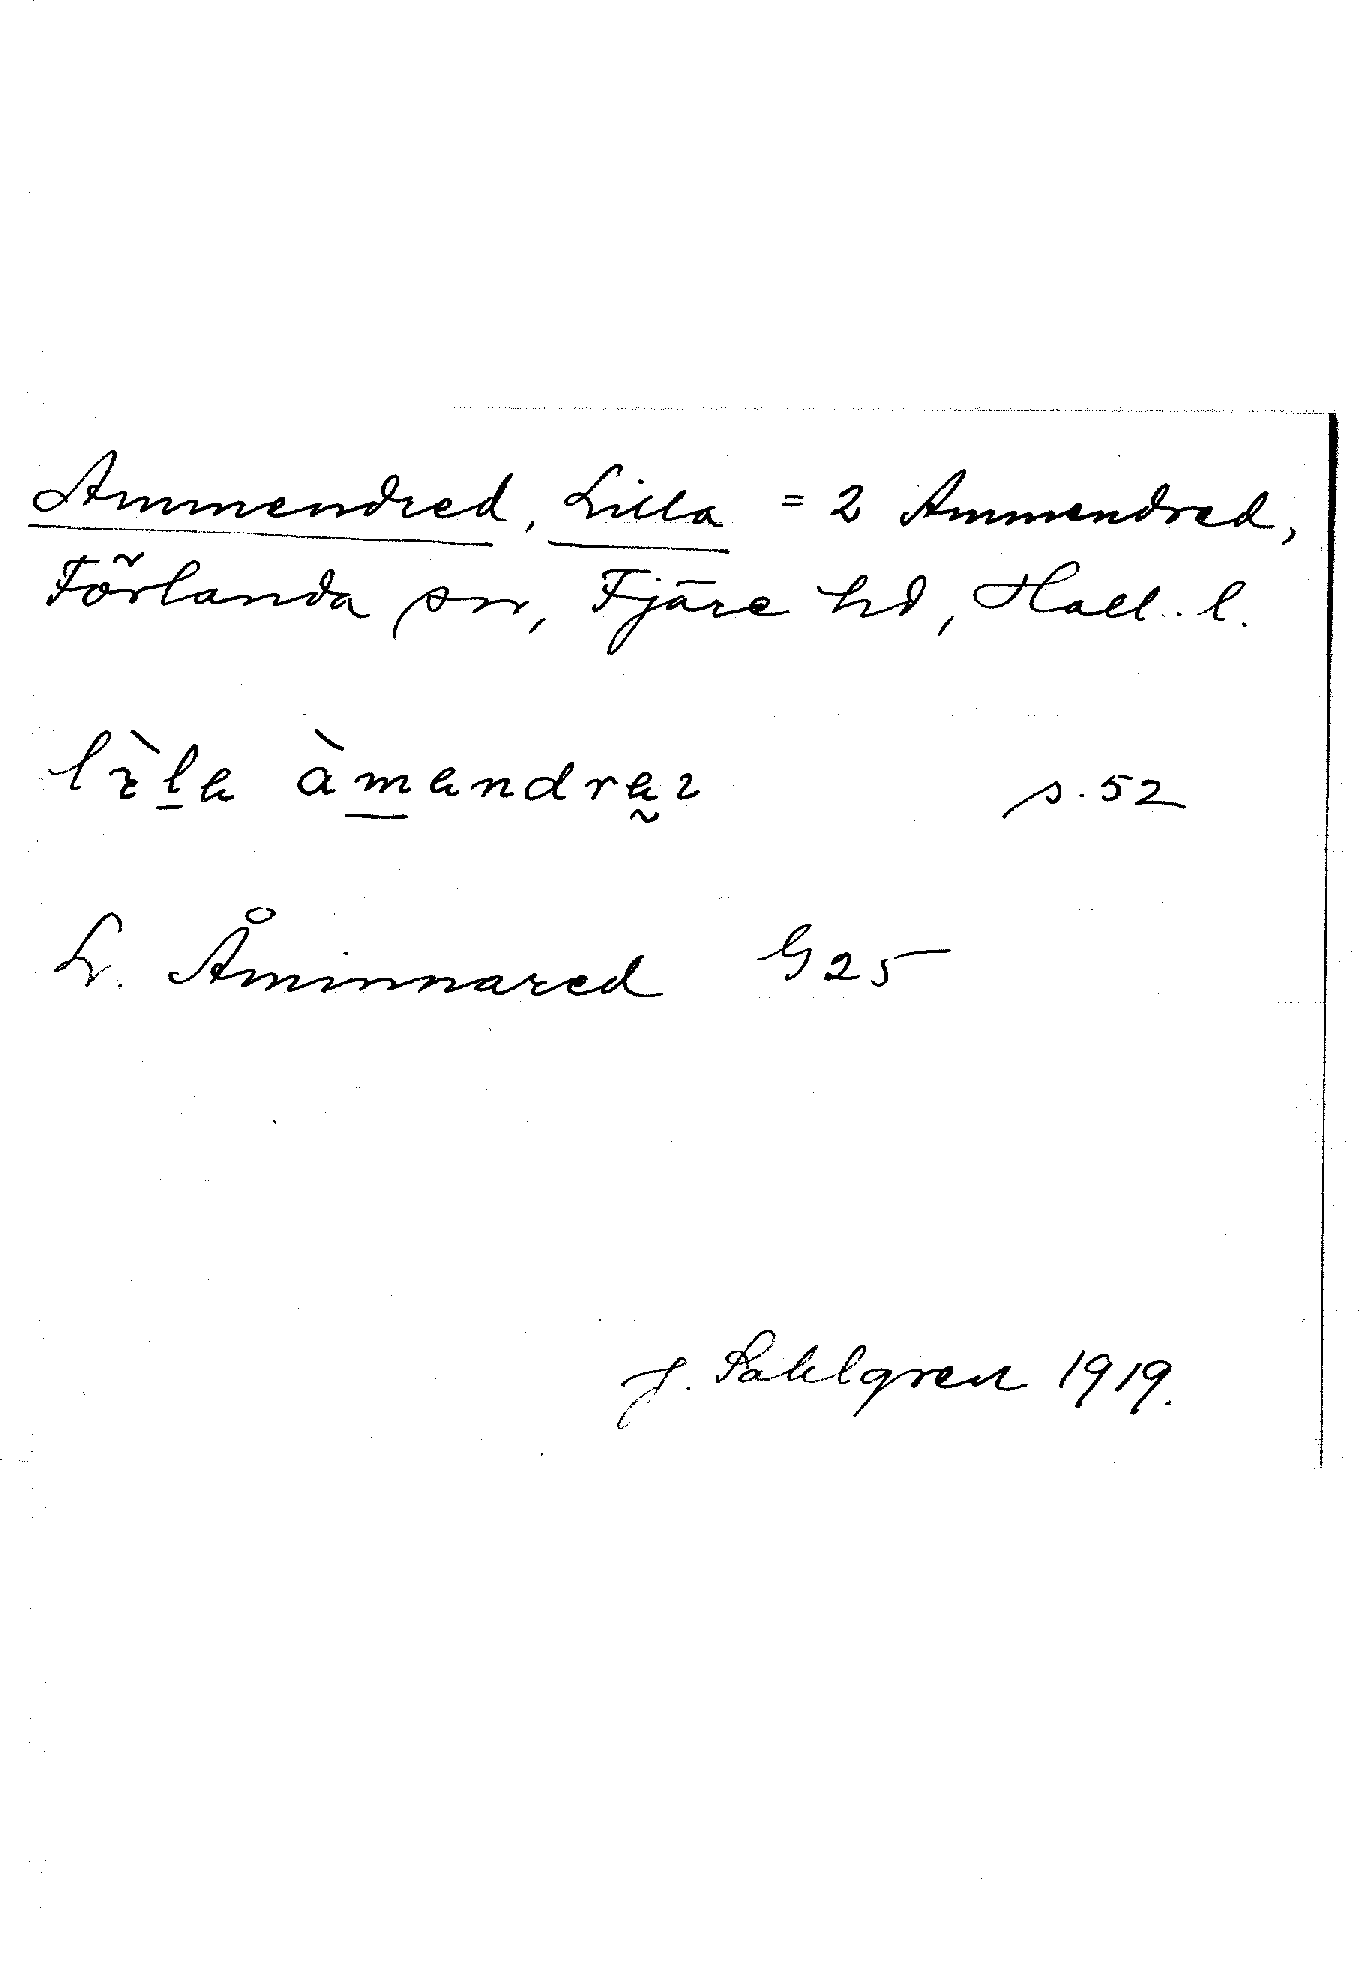 Ammendred, Lilla = 2 Ammendred,
Förlanda sn, Fjäre hd, Hall. l.
lìla àmandraz s. 52
L. Åminnared G25
J. Sahlgren 1919.